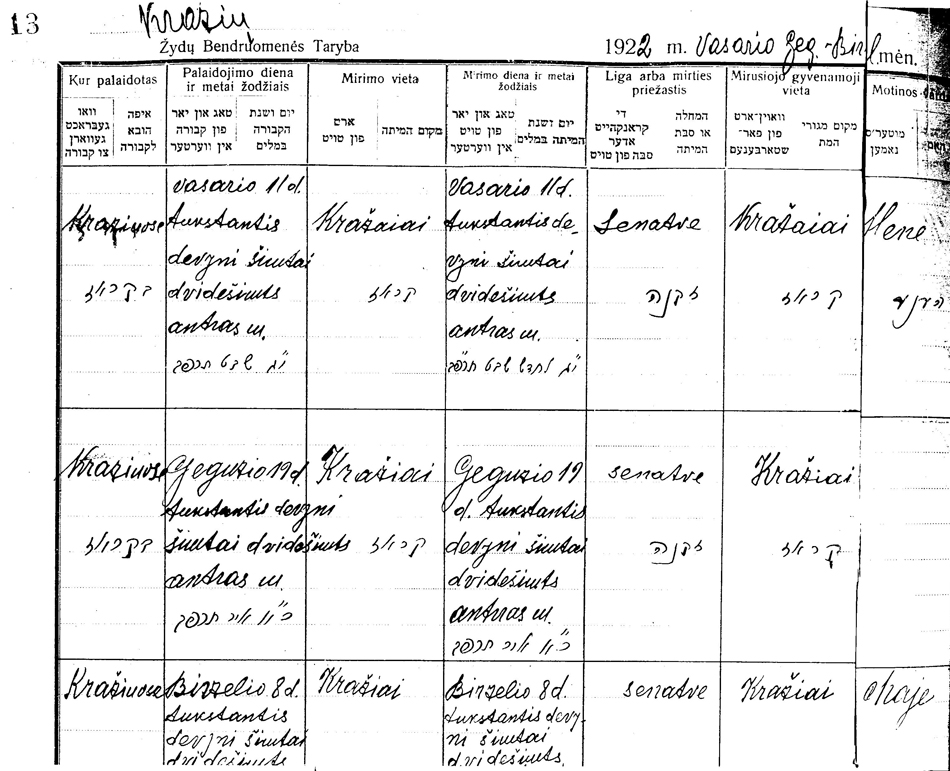 13
Kražių
Žydų Bendruomenės Taryba
1922 m. Vasario Geg.-Birž. mėn.
Kur palaidotas
וואו געבראכט געווארן צו קבורה
איפה הובא לקבורה
Palaidojimo diena ir metai žodžiais
טאג און יאר פון קבורה אין ווערטער
יום ושנת הקבורה במלים
Mirimo vieta
ארט פון טויט
מקום המיתה
Mirimo diena ir metai žodžiais
טאג און יאר פון טויט אין ווערטער
יום ושנת המיתה במלים
Liga arba mirties priežastis
די קראנקהייט אדער סבה פון טויט
המחלה או סבת המיתה
Mirusiojo gyvenamoji vieta
וואוין־ארט פון פאר־ שטארבענעם
מקום מגורי המת
Motinos
מוטער'ס נאמען
Kražiuose
בקראז
vasario 11 d.
tukstantis
devyni šimtai
dvidešimts
antras m.
י"ג שבט תרפ"ב
Kražaiai
קראז
Vasario 11 d.
tukstantis de-
vyni šimtai
dvidešimts
antras m.
י"ג לחדש שבט
Senatve
זקנה
Kražaiai
קראז
Hene
הענע
Kražiuose
בקראז
Gegužio 19 d.
tukstantis devyni
šimtai dvidešimts
antras m.
כ"א אייר תרפ"ב
Kražiai
קראז
Gegužio 19
d. tukstantis
devyni šimtai
dvidešimts
antras m.
כ"א אייר תרפ"ב
senatve
זקנה
Kražiai
קראז
Kražiuose
Birželio 8 d.
tukstantis
devyni šimtai
dvidešimts
Kražiai
Birželio 8 d.
tukstantis devy-
ni šimtai
dvidešimts
senatve
Kražiai
Chaje